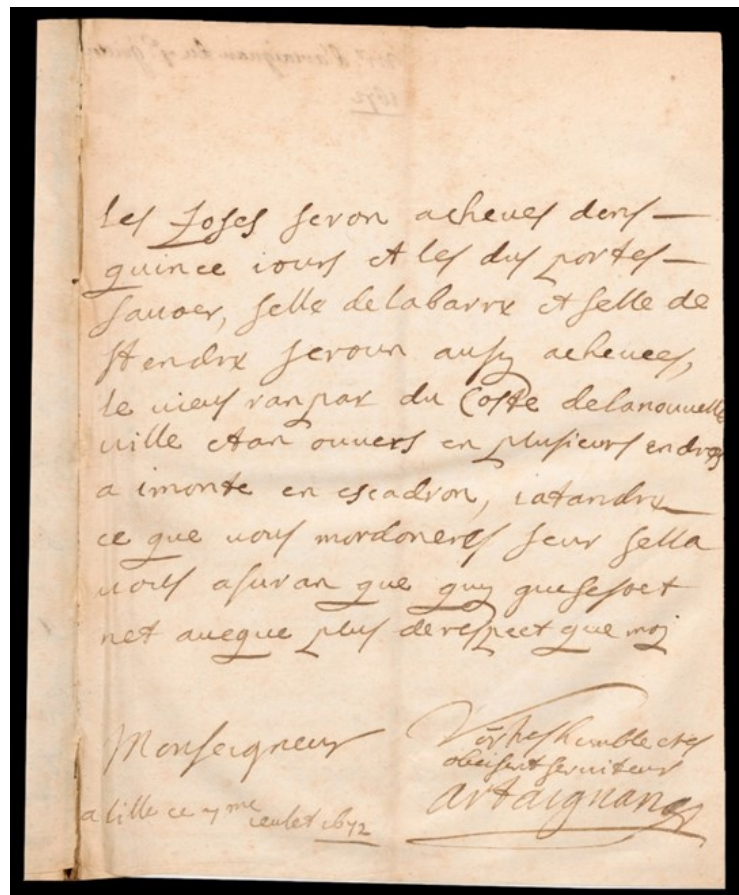 les foses seron acheues dens
quince iours et les dus portes
sauoer, selle de la barre et selle de
st endre seroun ausy acheuees,
le vieus ranpar du Coste de la nouuelle
uille etan ouuers en plusieurs endros
a imonte en escadron, iatandre
ce que uous mordoneres seur sella
uous asuran que quy que se soet
net aueque plus de respect que moj
Monseigneur
Vōr tres humble et tes
obeisent seruiteur
artaignan
a lille ce me ieulet 1672
1672